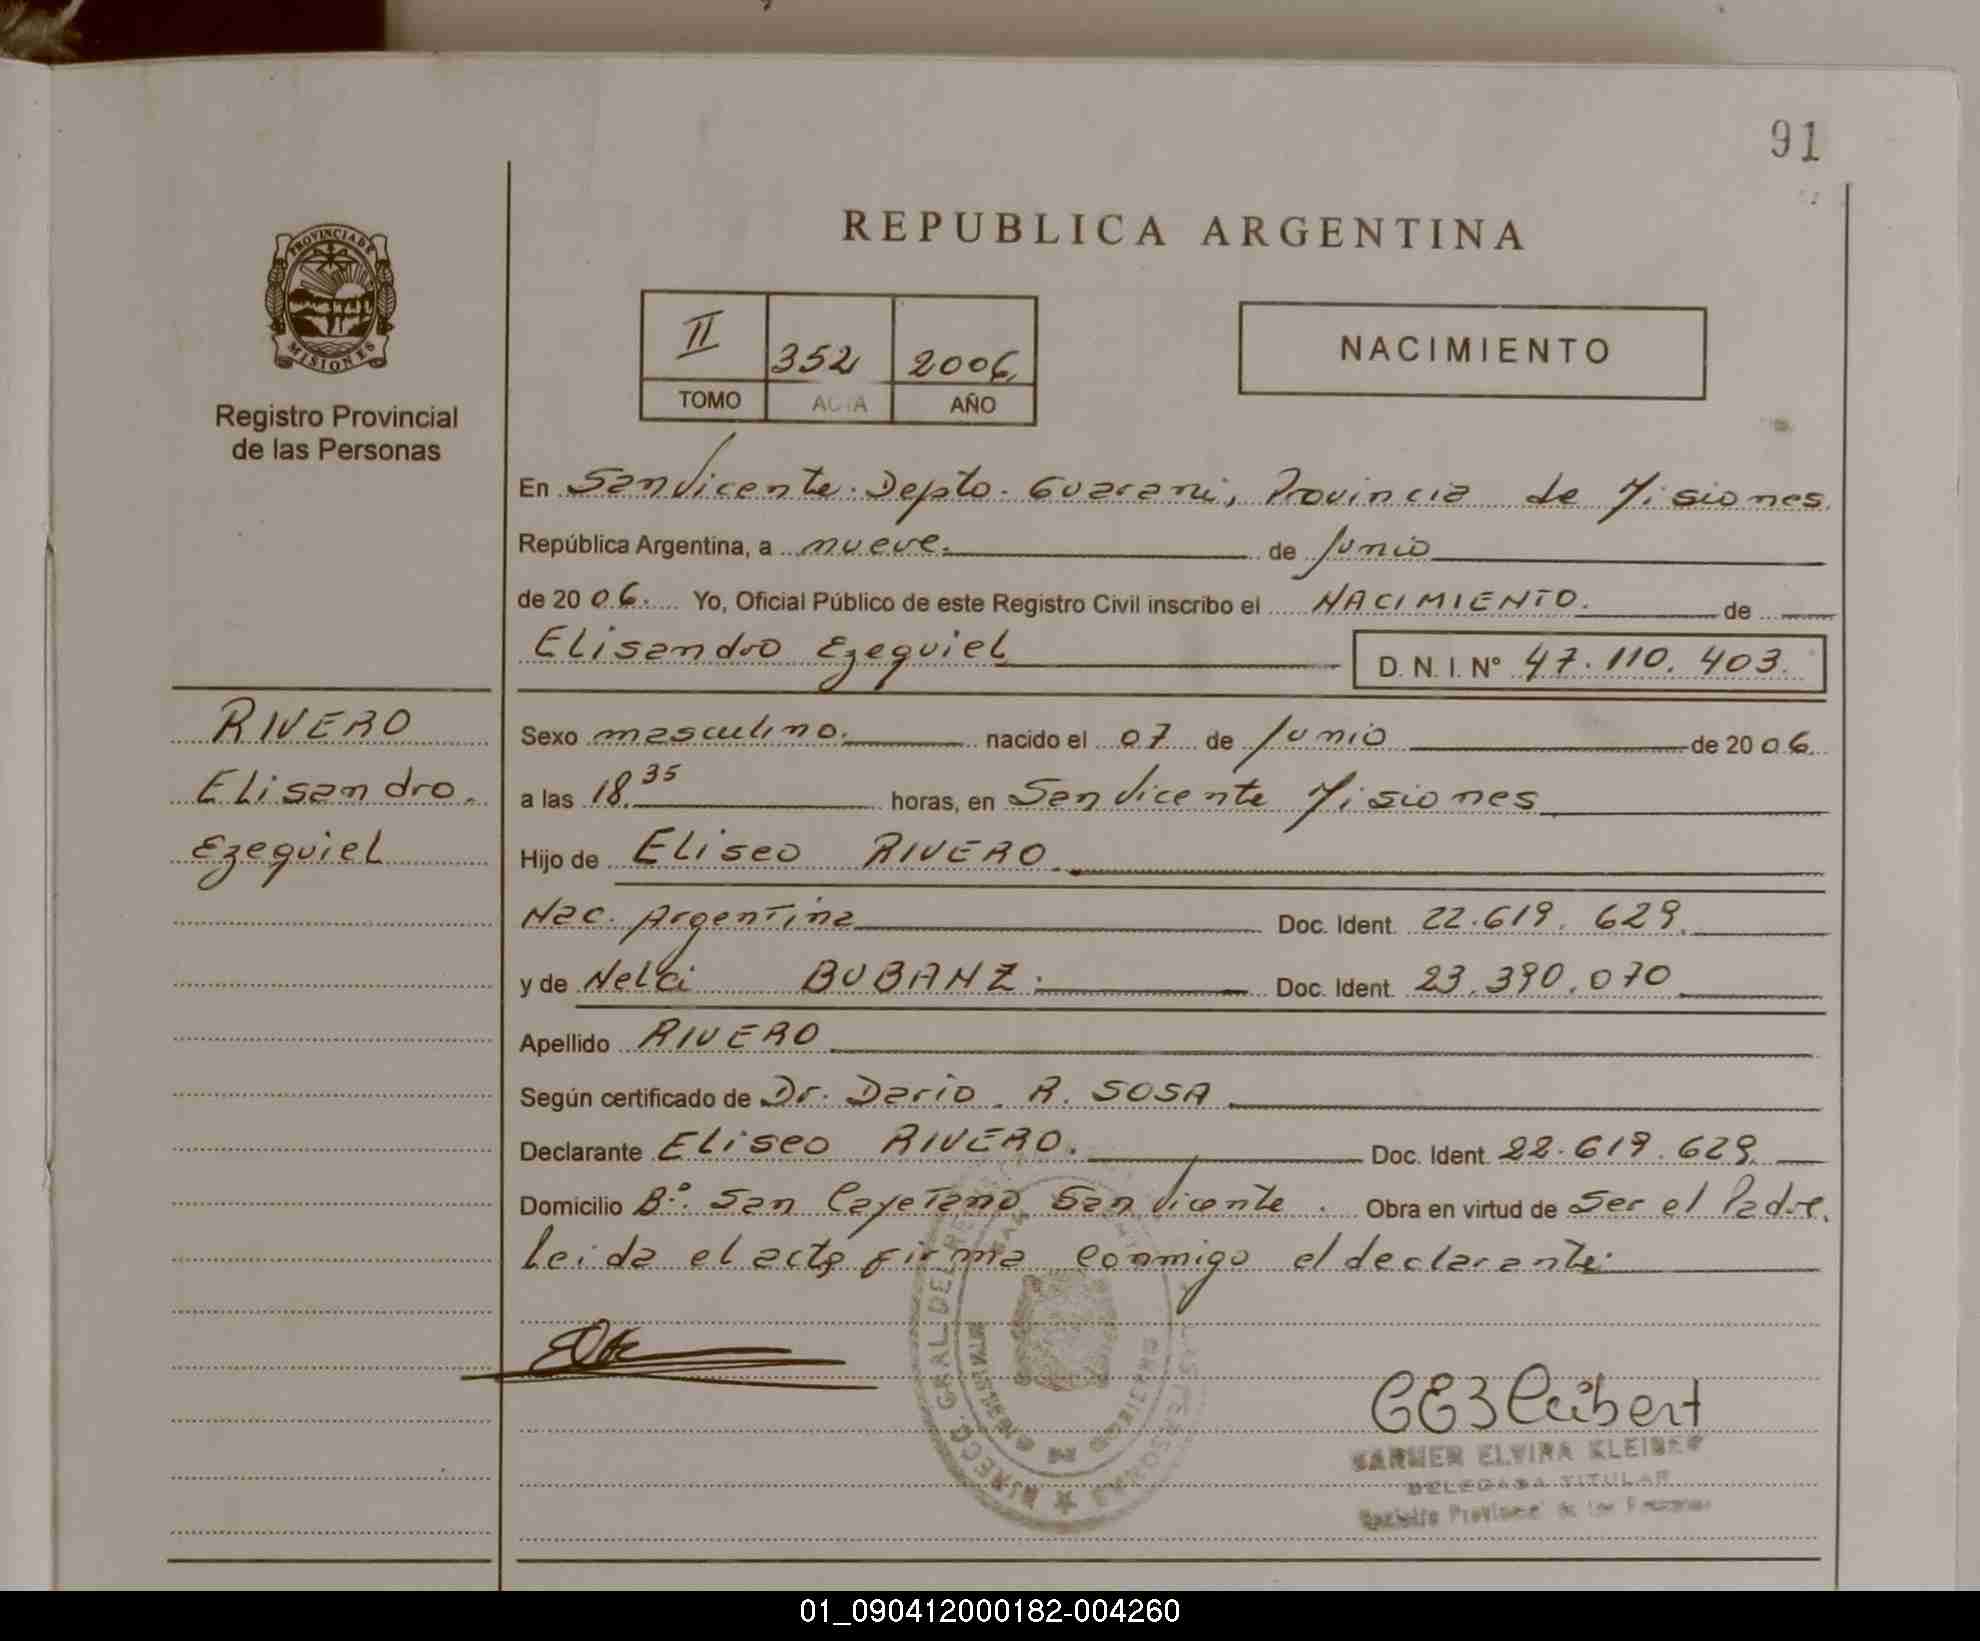 91
REPUBLICA ARGENTINA
PROVINCIA DE MISIONES
Registro Provincial
de las Personas
II 352 2006
TOMO ACTA AÑO
NACIMIENTO
En San Vicente. Depto. Guarani, Provincia de Misiones.
República Argentina, a nueve. de Junio
de 2006. Yo, Oficial Público de este Registro Civil inscribo el NACIMIENTO. de
Elisandro Ezequiel D. N. I. N° 47.110.403.
RIVERO
Elisandro.
Ezequiel
Sexo masculino. nacido el 07 de Junio de 2006.
a las 18.35 horas, en San Vicente Misiones
Hijo de Eliseo RIVERO.
Nac. Argentina Doc. Ident. 22.619.629.
y de Nelci BUBANZ. Doc. Ident. 23.390.070
Apellido RIVERO
Según certificado de Dr. Dario R. SOSA
Declarante Eliseo RIVERO. Doc. Ident. 22.619.629.
Domicilio B°. San Cayetano San Vicente. Obra en virtud de Ser el Padre.
Leida el acta firma conmigo el declarante.
CARMEN ELVIRA KLEIBER
DELEGADA TITULAR
Registro Provincial de las Personas
01_090412000182-004260